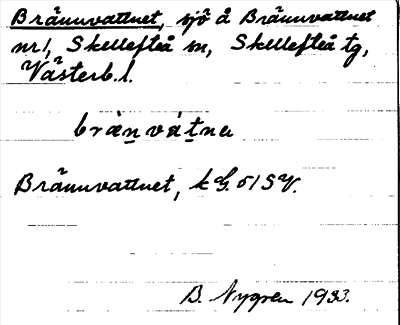 Brännvattnet, sjö å Brännvattnet
nr1, Skellefteå sn, Skellefteå tg,
Västerb.l.
brànvátne
Brännvattnet, k G. 51 SV.
B. Nygren 1933.